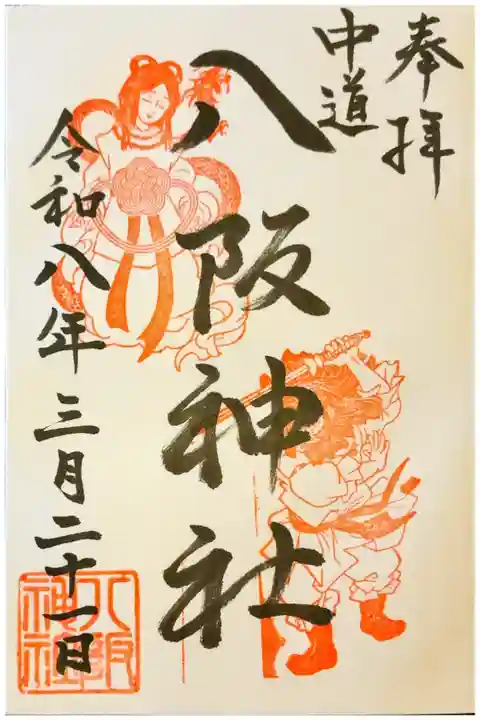 奉拝
中道
八阪神社
令和八年三月二十一日
八阪
神社